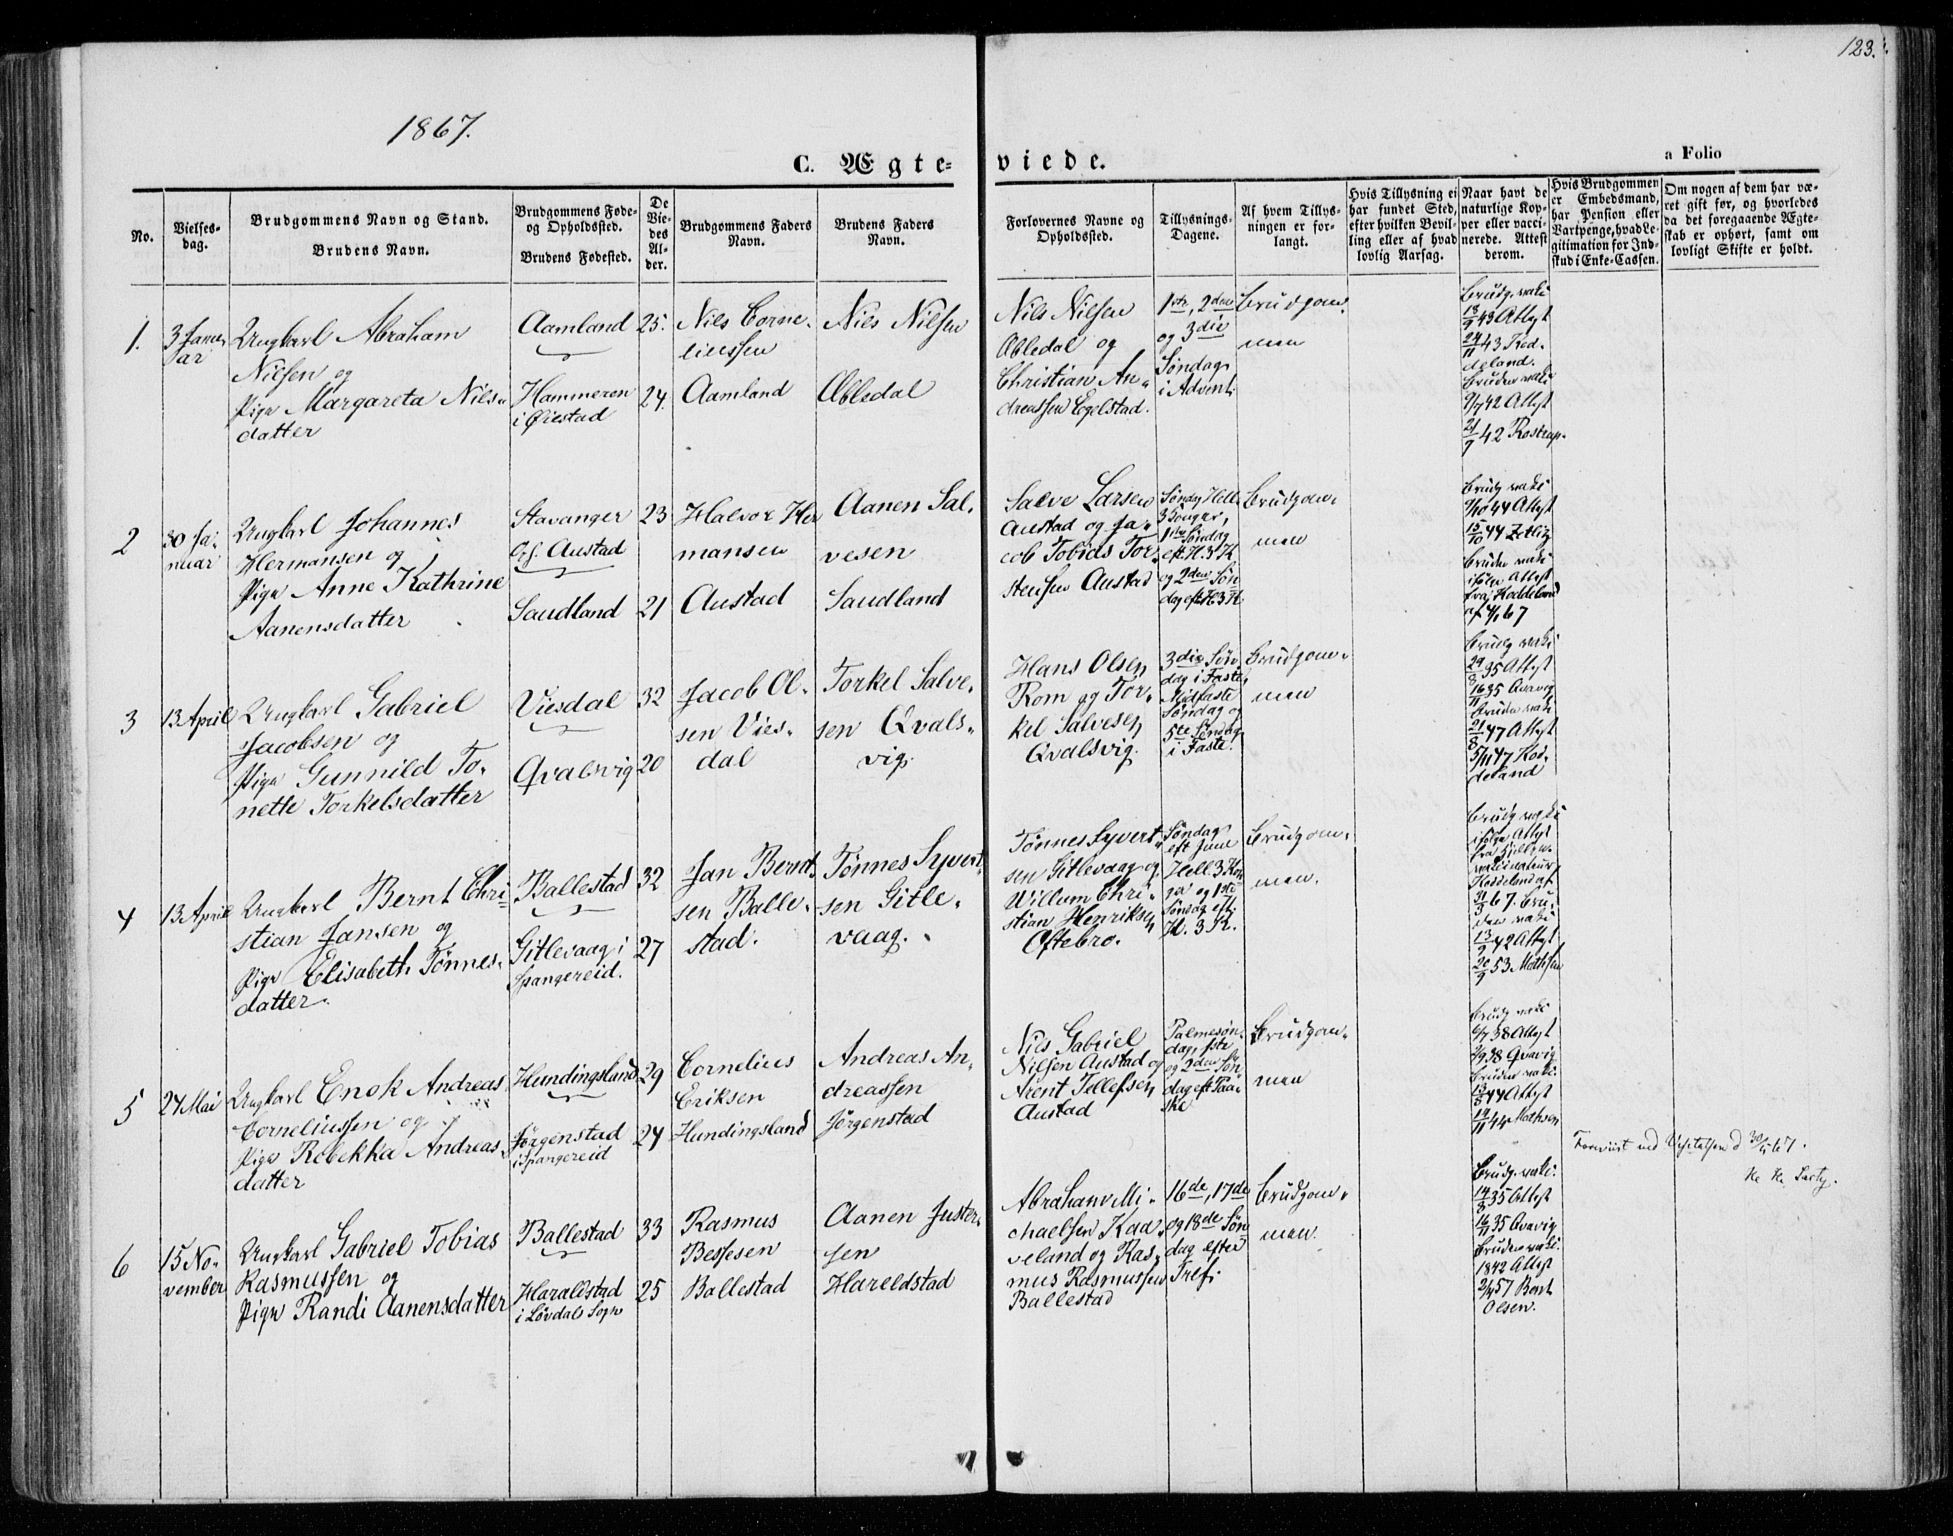 123.
1867.
C. Ægte=
viede.
a Folio
No.
Vielses-
dag.
Brudgommens Navn og Stand.
Brudens Navn.
Brudgommens Føde-
og Opholdssted.
Brudens Fødested.
De
Vie-
des
Al-
der.
Brudgommens Faders
Navn.
Brudens Faders
Navn.
Forlovernes Navne og
Opholdssted.
Tillysnings-
Dagene.
Af hvem Tillys-
ningen er for-
langt.
Hvis Tillysning ei
har fundet Sted,
efter hvilken Bevil-
ling eller af hvad
lovlig Aarsag.
Naar havt de
naturlige Kop-
per eller vacci-
nerede. Attest
derom.
Hvis Brudgommen
er Embedsmand,
har Pension eller
Vartpenge, hvad Le-
gitimation for Ind-
skud i Enke-Cassen.
Om nogen af dem har væ-
ret gift før, og hvorledes
da det foregaaende Ægte-
skab er ophørt, samt om
lovligt Skifte er holdt.
1.
3 Janu-
ar
Ungkarl Abraham
Nilsen og
Pige Margareta Nils-
datter
Aamland
Hammeren
i Øiestad
25.
24.
Nils Corne-
liussen
Aamland
Niels Nilsen
Abledal
Nils Nilsen
Abledal og
Christian An-
dreassen Egelstad.
1ste, 2den
og 3die
Søndag
i Advent.
Brudgom-
men
Brudg. vakc
13/9 43 Attest
24/11 43 Kod-
deland.
Bruden vakc
9/7 42 Attest
21/9 42 Rostrup.
2
30 Ja-
nuar
Ungkarl Johannes
Hermansen og
Pige Anne Kathrine
Aanensdatter
Stavanger
O/ Austad
Saudland
23
21
Halvor Her
mansen
Austad
Aanen Sal-
vesen
Saudland
Salve Larsen
Austad og Ja-
cob Tobias Tor-
stensen Austad
Søndag Hell.
3 Konger,
1ste Søndag
eft. H. 3 K.
og 2den Søn
dag eft H 3 K.
Brudgom-
men
Brudg vakc
9/10 44 Attest
15/10 44 Zetlitz
Bruden vakc
ifølge Attest
fra Koddeland
af 4/1 67
3
13 April
Ungkarl Gabriel
Jacobsen og
Pige Gunnild To-
nette Torkelsdatter
Viesdal
Qvalsvig
32
20
Jacob Ol-
sen Vies-
dal
Torkel Salve-
sen Qvals-
vig.
Hans Olsen
Rom og Tor-
kel Salvesen
Qvalsvig.
3die Søn
dag i Faste,
Midfaste
Søndag og
5te Søndag
i Faste.
Brudgom-
men
Brudg vakc
29/8 35 Attest
16/11 35 Qvavig
Bruden vakc
21/8 47 Attest
5/11 47 Kod-
deland
4
13 April
Ungkarl Bernt Chri-
stian Jansen og
Pige Elisabeth Tønnes-
datter.
Ballestad
Gitlevaag i
Spangereid.
32
27
Jan Bernt-
sen Balle-
stad.
Tønnes Syvert-
sen Gitle-
vaag.
Tønnes Syvert-
sen Gitlevaag og
Willum Chri-
stian Henriksen
Oftebro.
Søndag
eft Juul
Hell. 3 Kon
ger og 1ste
Søndag eft.
H. 3 K.
Brudgom-
men.
Brudg vakc
ifølge Attest
fra Hjelpe-
vakcinateur
Koddeland af
31/3 67. Bru-
den vakc
13/9 42 Attest
20/9 53 Mathsen
5
24 Mai
Ungkarl Enok Andreas
Corneliussen og
Pige Rebekka Andreas-
datter
Hundingsland
Jørgenstad
i Spangereid
29
24
Cornelius
Eriksen
Hundingsland
Andreas An-
dreassen
Jørgenstad
Nils Gabriel
Nilsen Austad og
Arent Tellefsen
Austad
Palmesøn-
dag, 1ste
og 2den Søn
dag eft Paa-
ske
Brudgom-
men
Brudg vakc
6/7 38 Attest
2/9 38 Qvavig
Bruden vakc.
13/8 44 Attest
12/11 44 Mathsen
Foreviist ved Visitatsen d 30/5 67.
6
15 No-
vember
Ungkarl Gabriel Tobias
Rasmussen og
Pige Randi Aanensdatter
Ballestad
Haraldstad
i Løvdals Sogn
33
25
Rasmus
Bessesen
Ballestad
Aanen Juster-
sen
Hareldstad
Abraham Mi-
chaelsen Kaa-
veland og Ras-
mus Rasmussen
Ballestad
16de, 17de
og 18de Søn
dag efter
Tref.
Brudgom-
men.
Brudg. vakc.
14/8 35 Attest
16/11 35 Qvavig
Bruden vakc.
1842 Attest
2/4 57 Bent
Olsen.